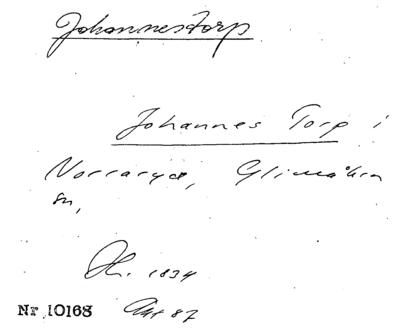 Johannestorp
Johannes Torp i
Norraryd, Glimåkra
sn,
1834
Nr 10168 87